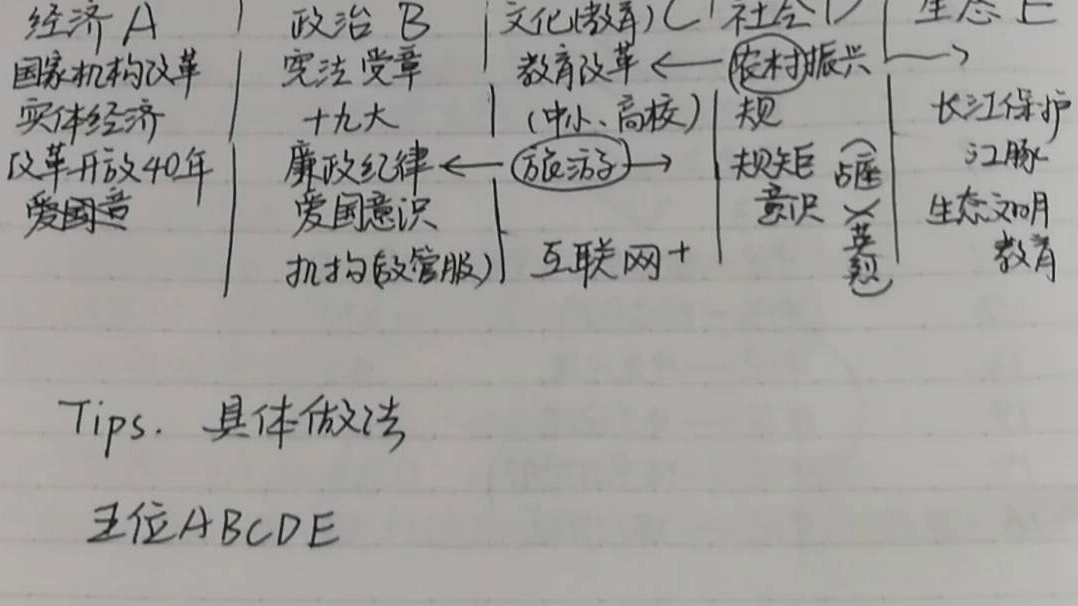 经济 A 政治 B 文化(教育) C 社会 D 生态 E
国家机构改革 宪法 党章 教育改革 ← 农村振兴 →
实体经济 十九大 (中小、高校) 规 长江保护
改革开放40年 廉政纪律 ← 旅游 → 规矩 (占座) 江豚
爱国意 爱国意识 意识 (英烈) 生态文明
机构(放管服) 互联网+ 教育
Tips. 具体做法
五位ABCDE